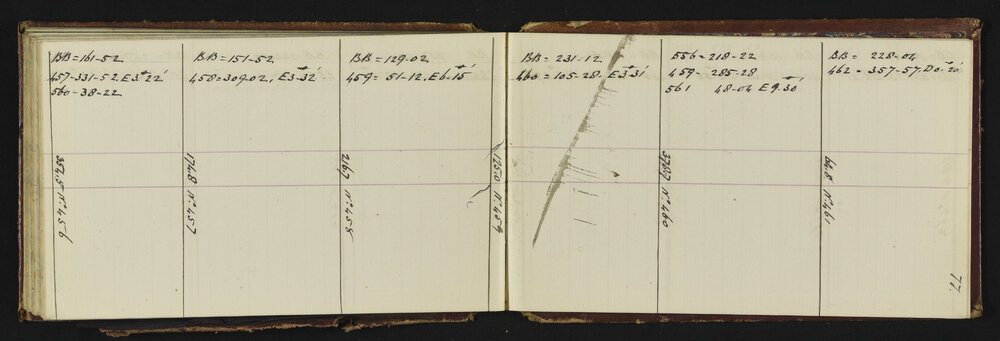 BB=161-52
457-331-52. E3-22'
560-38-22
BB=151-52
458=309.02, E3-32'
BB=129.02
459= 51-12, E6-15'
BB= 231.12
460=105-28. E3-31
556-218-22
459- 285-28
561 48-04 E9.30'
BB= 228-04
462- 357-57. D0-20'
354.5 No 456
174.8 No 457
216.7 No 458
125.0 No 459
378.7 No 460
64.8 No 461
77.